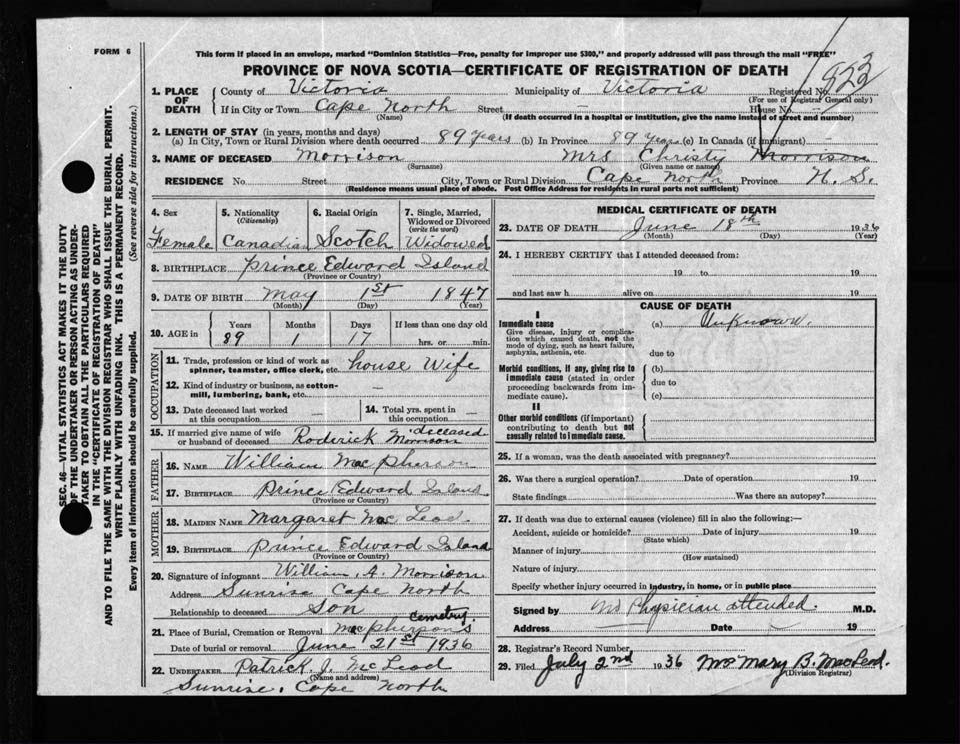 FORM 6
This form if placed in an envelope, marked "Dominion Statistics—Free, penalty for improper use $300," and properly addressed will pass through the mail "FREE"
PROVINCE OF NOVA SCOTIA—CERTIFICATE OF REGISTRATION OF DEATH
SEC. 46—VITAL STATISTICS ACT MAKES IT THE DUTY
OF THE UNDERTAKER OR PERSON ACTING AS UNDER-
TAKER TO OBTAIN ALL THE PARTICULARS REQUIRED
IN THE "CERTIFICATE OF REGISTRATION OF DEATH"
AND TO FILE THE SAME WITH THE DIVISION REGISTRAR WHO SHALL ISSUE THE BURIAL PERMIT.
WRITE PLAINLY WITH UNFADING INK. THIS IS A PERMANENT RECORD.
Every item of information should be carefully supplied. (See reverse side for instructions.)
1. PLACE OF DEATH County of Victoria Municipality of Victoria Registered No. 923
(For use of Registrar General only)
If in City or Town Cape North Street — House No. —
(Name) (If death occurred in a hospital or institution, give the name instead of street and number)
2. LENGTH OF STAY (in years, months and days)
(a) In City, Town or Rural Division where death occurred 89 years (b) In Province 89 Years (c) In Canada (if immigrant) —
3. NAME OF DECEASED Morrison Mrs Christy Morrison
(Surname) (Given name or names)
RESIDENCE No. Street City, Town or Rural Division Cape North Province N. S.
(Residence means usual place of abode. Post Office Address for residents in rural parts not sufficient)
4. Sex Female
5. Nationality (Citizenship) Canadian
6. Racial Origin Scotch
7. Single, Married, Widowed or Divorced (write the word) Widowed
8. BIRTHPLACE Prince Edward Island
(Province or Country)
9. DATE OF BIRTH May 1st 1847
(Month) (Day) (Year)
10. AGE in Years 89 Months 1 Days 17 If less than one day old hrs. or min.
OCCUPATION
11. Trade, profession or kind of work as spinner, teamster, office clerk, etc. house Wife
12. Kind of industry or business, as cotton-mill, lumbering, bank, etc. —
13. Date deceased last worked at this occupation — 14. Total yrs. spent in this occupation —
15. If married give name of wife or husband of deceased Roderick Morrison deceased
FATHER
16. NAME William MacPherson
17. BIRTHPLACE Prince Edward Island
(Province or Country)
MOTHER
18. MAIDEN NAME Margaret MacLeod
19. BIRTHPLACE Prince Edward Island
(Province or Country)
20. Signature of informant William. A. Morrison
Address Sunrise Cape North
Relationship to deceased Son
21. Place of Burial, Cremation or Removal MacPherson's Cemetry
Date of burial or removal June 21st 1936
22. UNDERTAKER Patrick. J. McLeod
(Name and address)
Sunrise, Cape North
MEDICAL CERTIFICATE OF DEATH
23. DATE OF DEATH June 18th 1936
(Month) (Day) (Year)
24. I HEREBY CERTIFY that I attended deceased from:
19 to 19
and last saw h alive on 19
CAUSE OF DEATH
I
Immediate cause (a) Unknown.
Give disease, injury or complication which caused death, not the mode of dying, such as heart failure, asphyxia, asthenia, etc.
due to
Morbid conditions, if any, giving rise to immediate cause (stated in order proceeding backwards from immediate cause).
(b)
due to
(c)
II
Other morbid conditions (if important) contributing to death but not causally related to immediate cause.
25. If a woman, was the death associated with pregnancy?
26. Was there a surgical operation? Date of operation 19
State findings Was there an autopsy?
27. If death was due to external causes (violence) fill in also the following:—
Accident, suicide or homicide? Date of injury 19
(State which)
Manner of injury
(How sustained)
Nature of injury
Specify whether injury occurred in industry, in home, or in public place
Signed by No Physician attended. M.D.
Address Date 19
28. Registrar's Record Number
29. Filed July 2nd 1936 Mrs Mary B. MacLeod.
(Division Registrar)